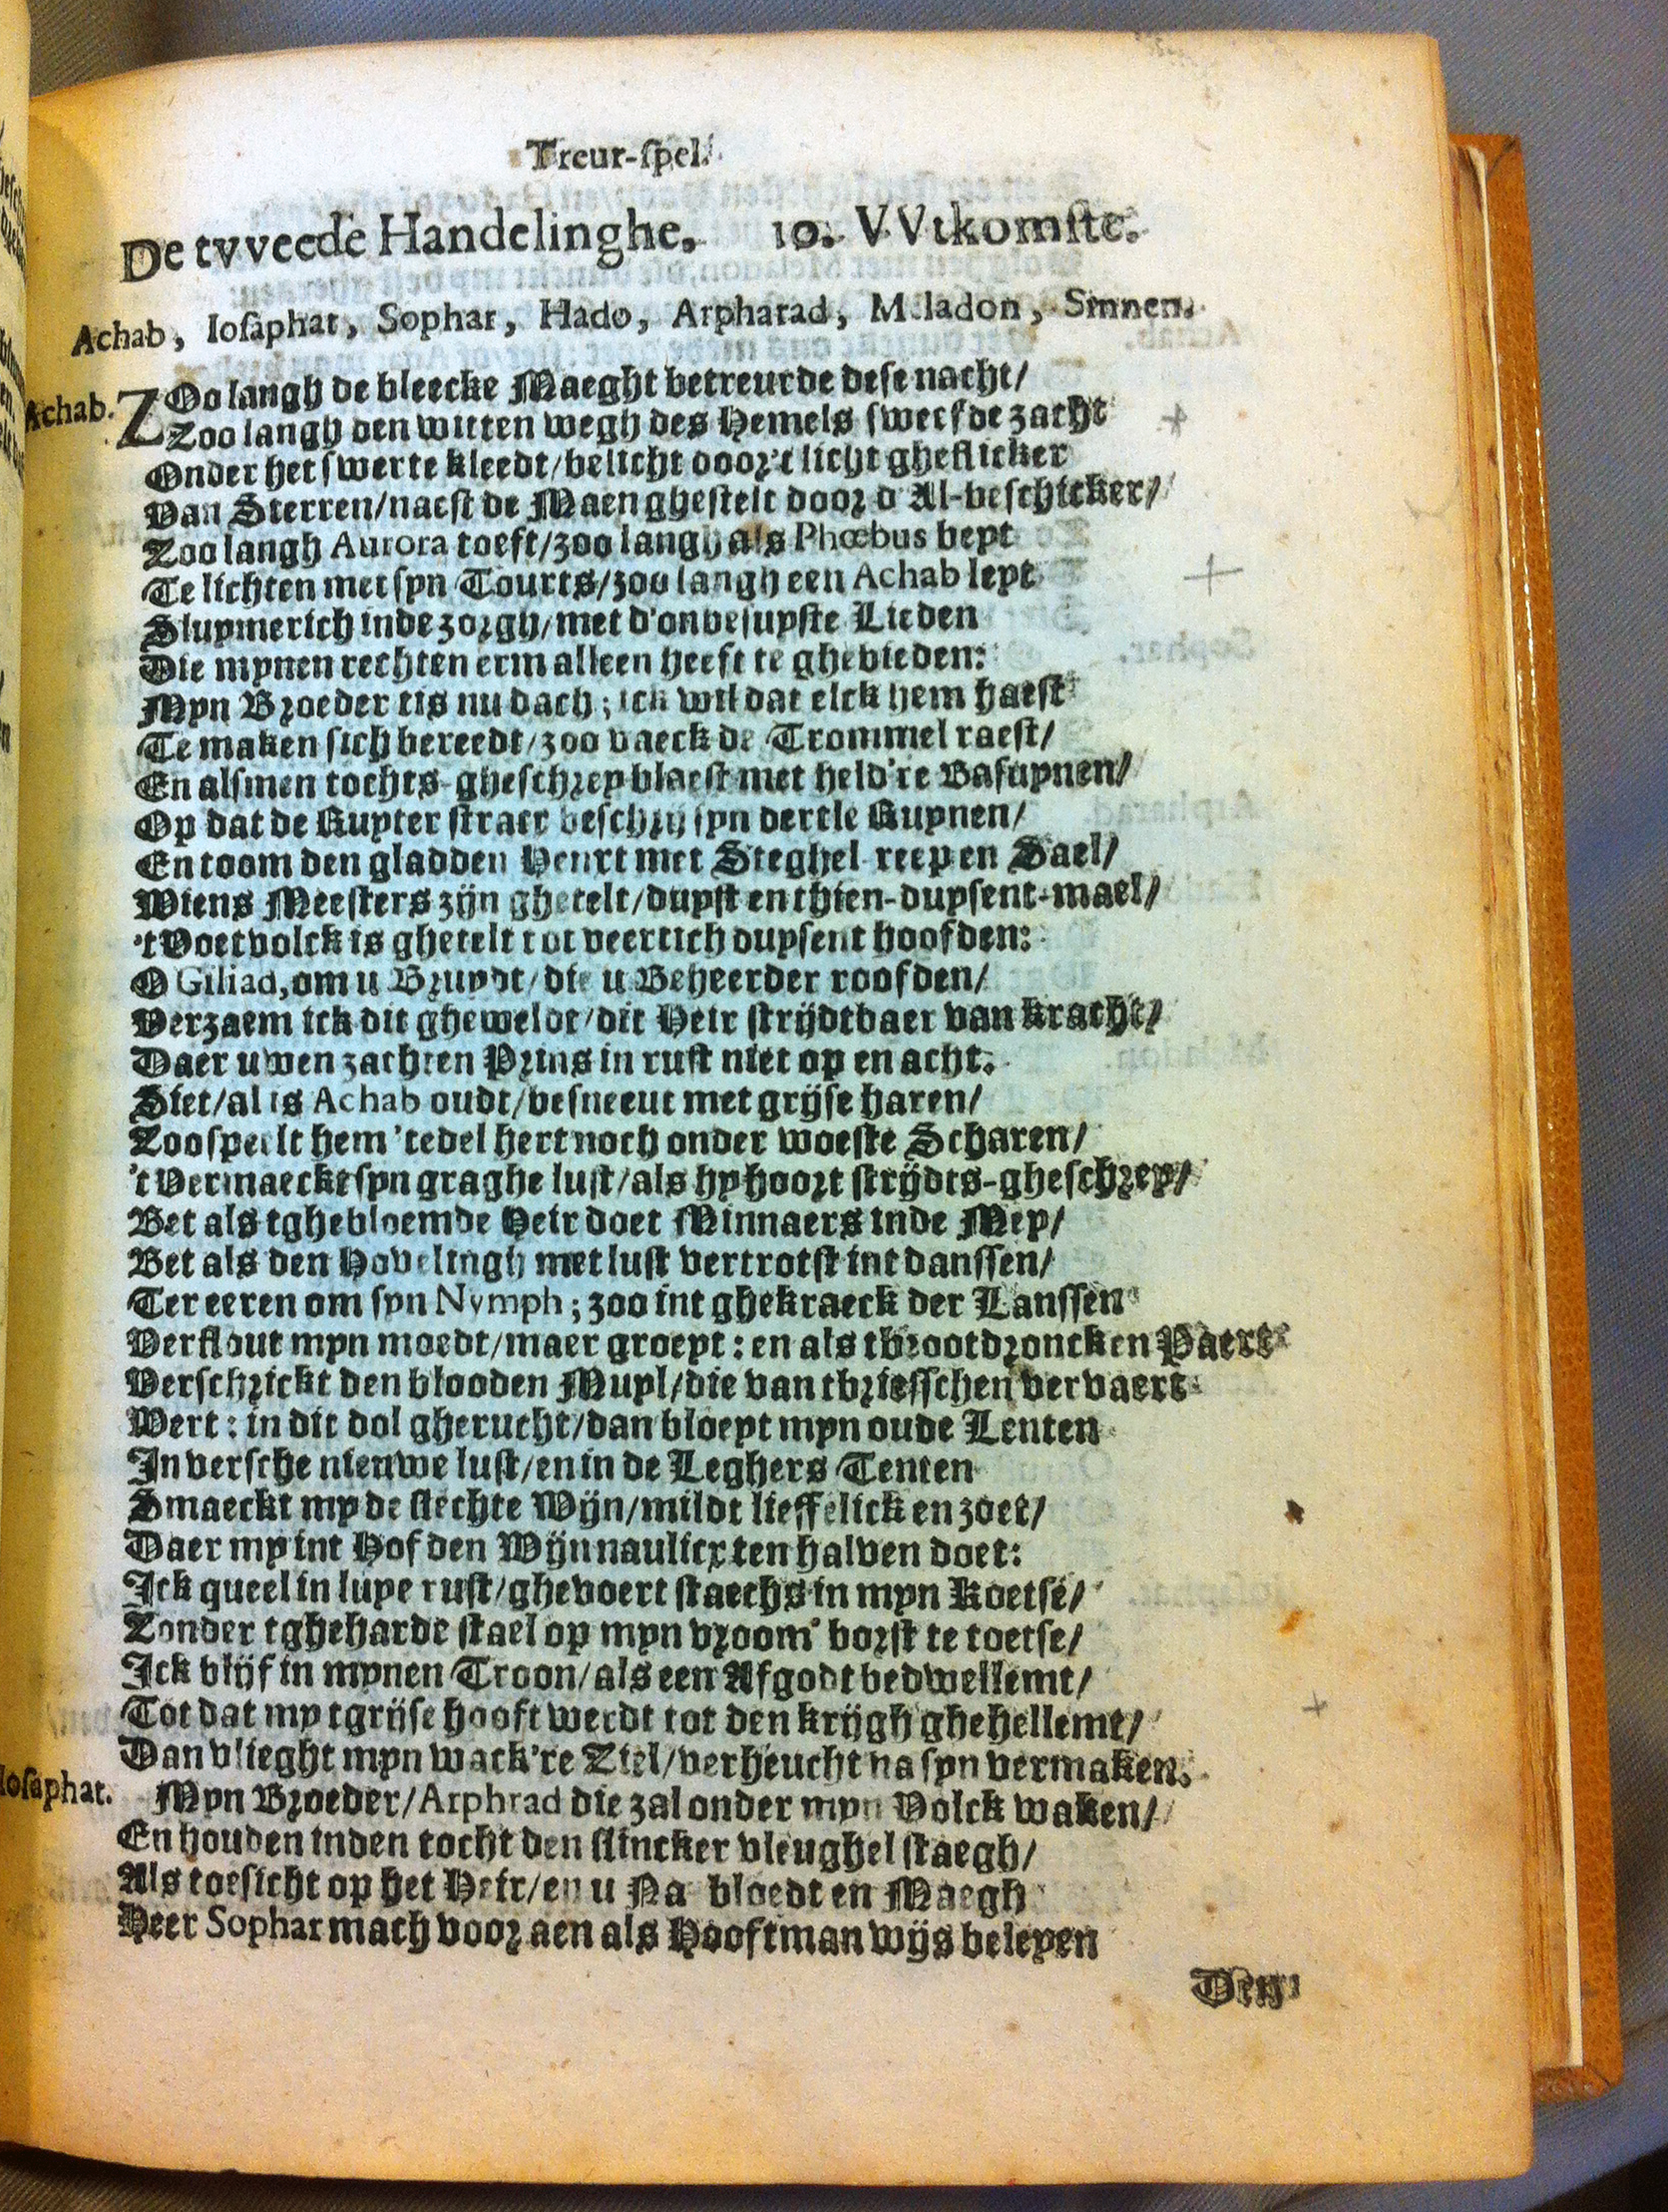 Treur-ſpel.
De tvveede Handelinghe. 10. VVtkomſte.
Achab, Ioſaphat, Sophar, Hado, Arpharad, M ladon, Sinnen.
Achab. ZOo langh de bleecke Maeght betreurde deſe nacht/
Zoo langh den witten wegh des Hemels ſweefde zacht
Onder het ſwerte kleedt/belicht door't licht gheflicker
Van Sterren/naeſt de Maen gheſtelt door d'Al-beſchicker/
Zoo langh Aurora toeft/zoo langh als Phœbus beyt
Te lichten met ſyn Tourts/zoo langh een Achab leyt
Sluymerich inde zorgh/met d'onbeſuyſte Lieden
Die mynen rechten erm alleen heeft te ghebieden:
Myn Broeder tis nu dach; ick wil dat elck hem haeſt
Te maken ſich bereedt/zoo vaeck de Trommel raeſt/
En alſmen tochts-gheſchrey blaeſt met held're Baſuynen/
Op dat de Ruyter ſtraet beſchry ſyn dertle Ruynen/
En toom den gladden Henxt met Steghel-reep en Sael/
Wiens Meeſters zijn ghetelt/duyſt en thien-duyſent-mael/
't Voetvolck is ghetelt tot veertich duyſent hoofden:
O Giliad, om u Bruydt/die u Beheerder roofden/
Verzaem ick dit gheweldt/dit Heir ſtrijdtbaer van kracht/
Daer uwen zachten Prins in ruſt niet op en acht.
Siet/al is Achab oudt/beſneeut met grijſe haren/
Zoo ſpeelt hem 'tedel hert noch onder woeſte Scharen/
't Vermaeckt ſyn graghe luſt/als hy hoort ſtrijdts-gheſchrey/
Bet als tghebloemde Heir doet Minnaers inde Mey/
Bet als den Hovelingh met luſt vertrotſt int danſſen/
Ter eeren om ſyn Nymph; zoo int ghekraeck der Lanſſen
Verflout myn moedt/maer groeyt: en als tbrootdroncken Paert
Verſchrickt den blooden Muyl/die van tbrieſſchen vervaert
Wert: in dit dol gherucht/dan bloeyt myn oude Lenten
In verſche nieuwe luſt/en in de Leghers Tenten
Smaeckt my de ſlechte Wijn/mildt lieffelick en zoet/
Daer my int Hof den Wijn naulicx ten halven doet:
Ick queel in luye ruſt/ghevoert ſtaechs in myn Koetſe/
Zonder tgheharde ſtael op myn vroom' borſt te toetſe/
Ick blijf in mynen Troon/als een Afgodt bedwellemt/
Tot dat my tgrijſe hooft werdt tot den krijgh ghehellemt/
Dan vlieght myn wack're Ziel/verheucht na ſyn vermaken.
Ioſaphat. Myn Broeder/Arphrad die zal onder myn Volck waken/
En houden inden tocht den ſlincker vleughel ſtaegh/
Als toeſicht op het Heir/en u Na bloedt en Maegh
Heer Sophar mach voor aen als Hooftman wijs beleyen
Den